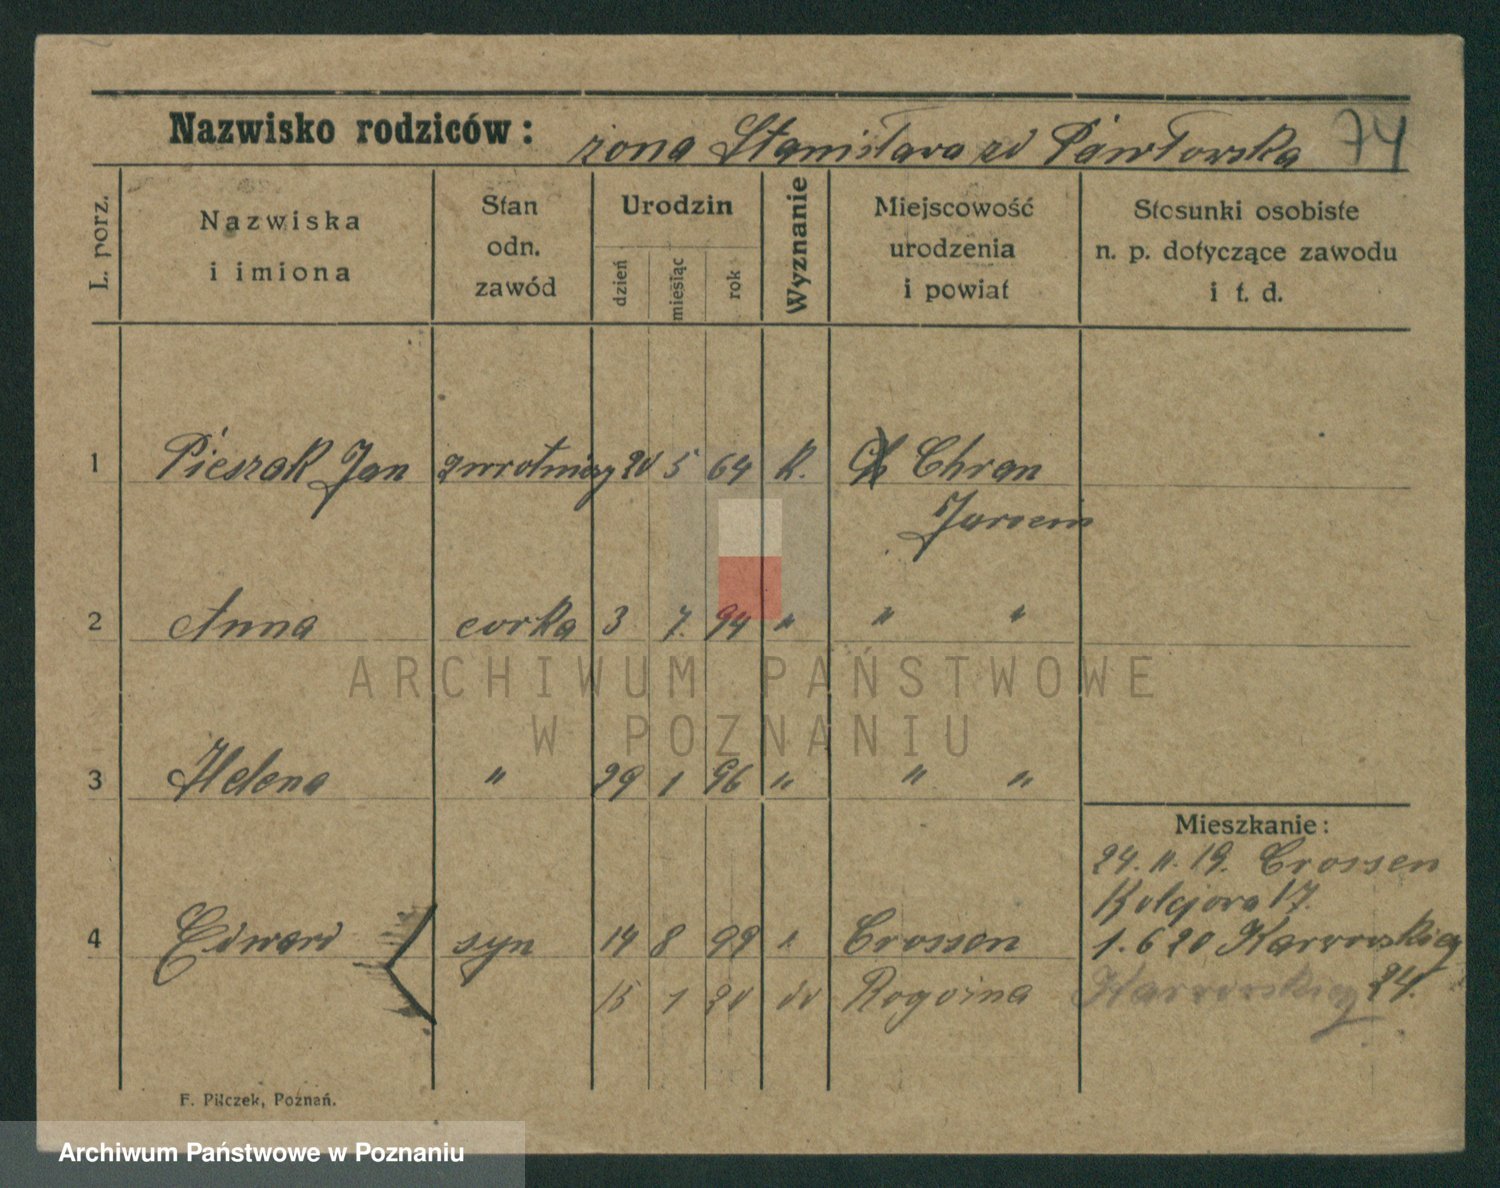 Nazwisko rodziców: żona Stanisława zd Pawłowska 74
L. porz.
Nazwiska i imiona
Stan odn. zawód
Urodzin
dzień miesiąc rok
Wyznanie
Miejscowość urodzenia i powiat
Stosunki osobiste n. p. dotyczące zawodu i t. d.
1 Pieszak Jan zwrotniczy 20 5 64 K. Chran
Jarocin
2 Anna corka 3 7. 94 " " "
3 Helena " 29 1 96 " " "
Mieszkanie:
24. 11. 19. Crossen
Kolejowa 17.
4 Edward syn 14 8 99 " Crossen
1. 6 20 Karwowskiej
24.
15 1 20 do Rogoźna
Karwowskiej
F. Pilczek, Poznań.
ARCHIWUM PAŃSTWOWE
W POZNANIU
Archiwum Państwowe w Poznaniu